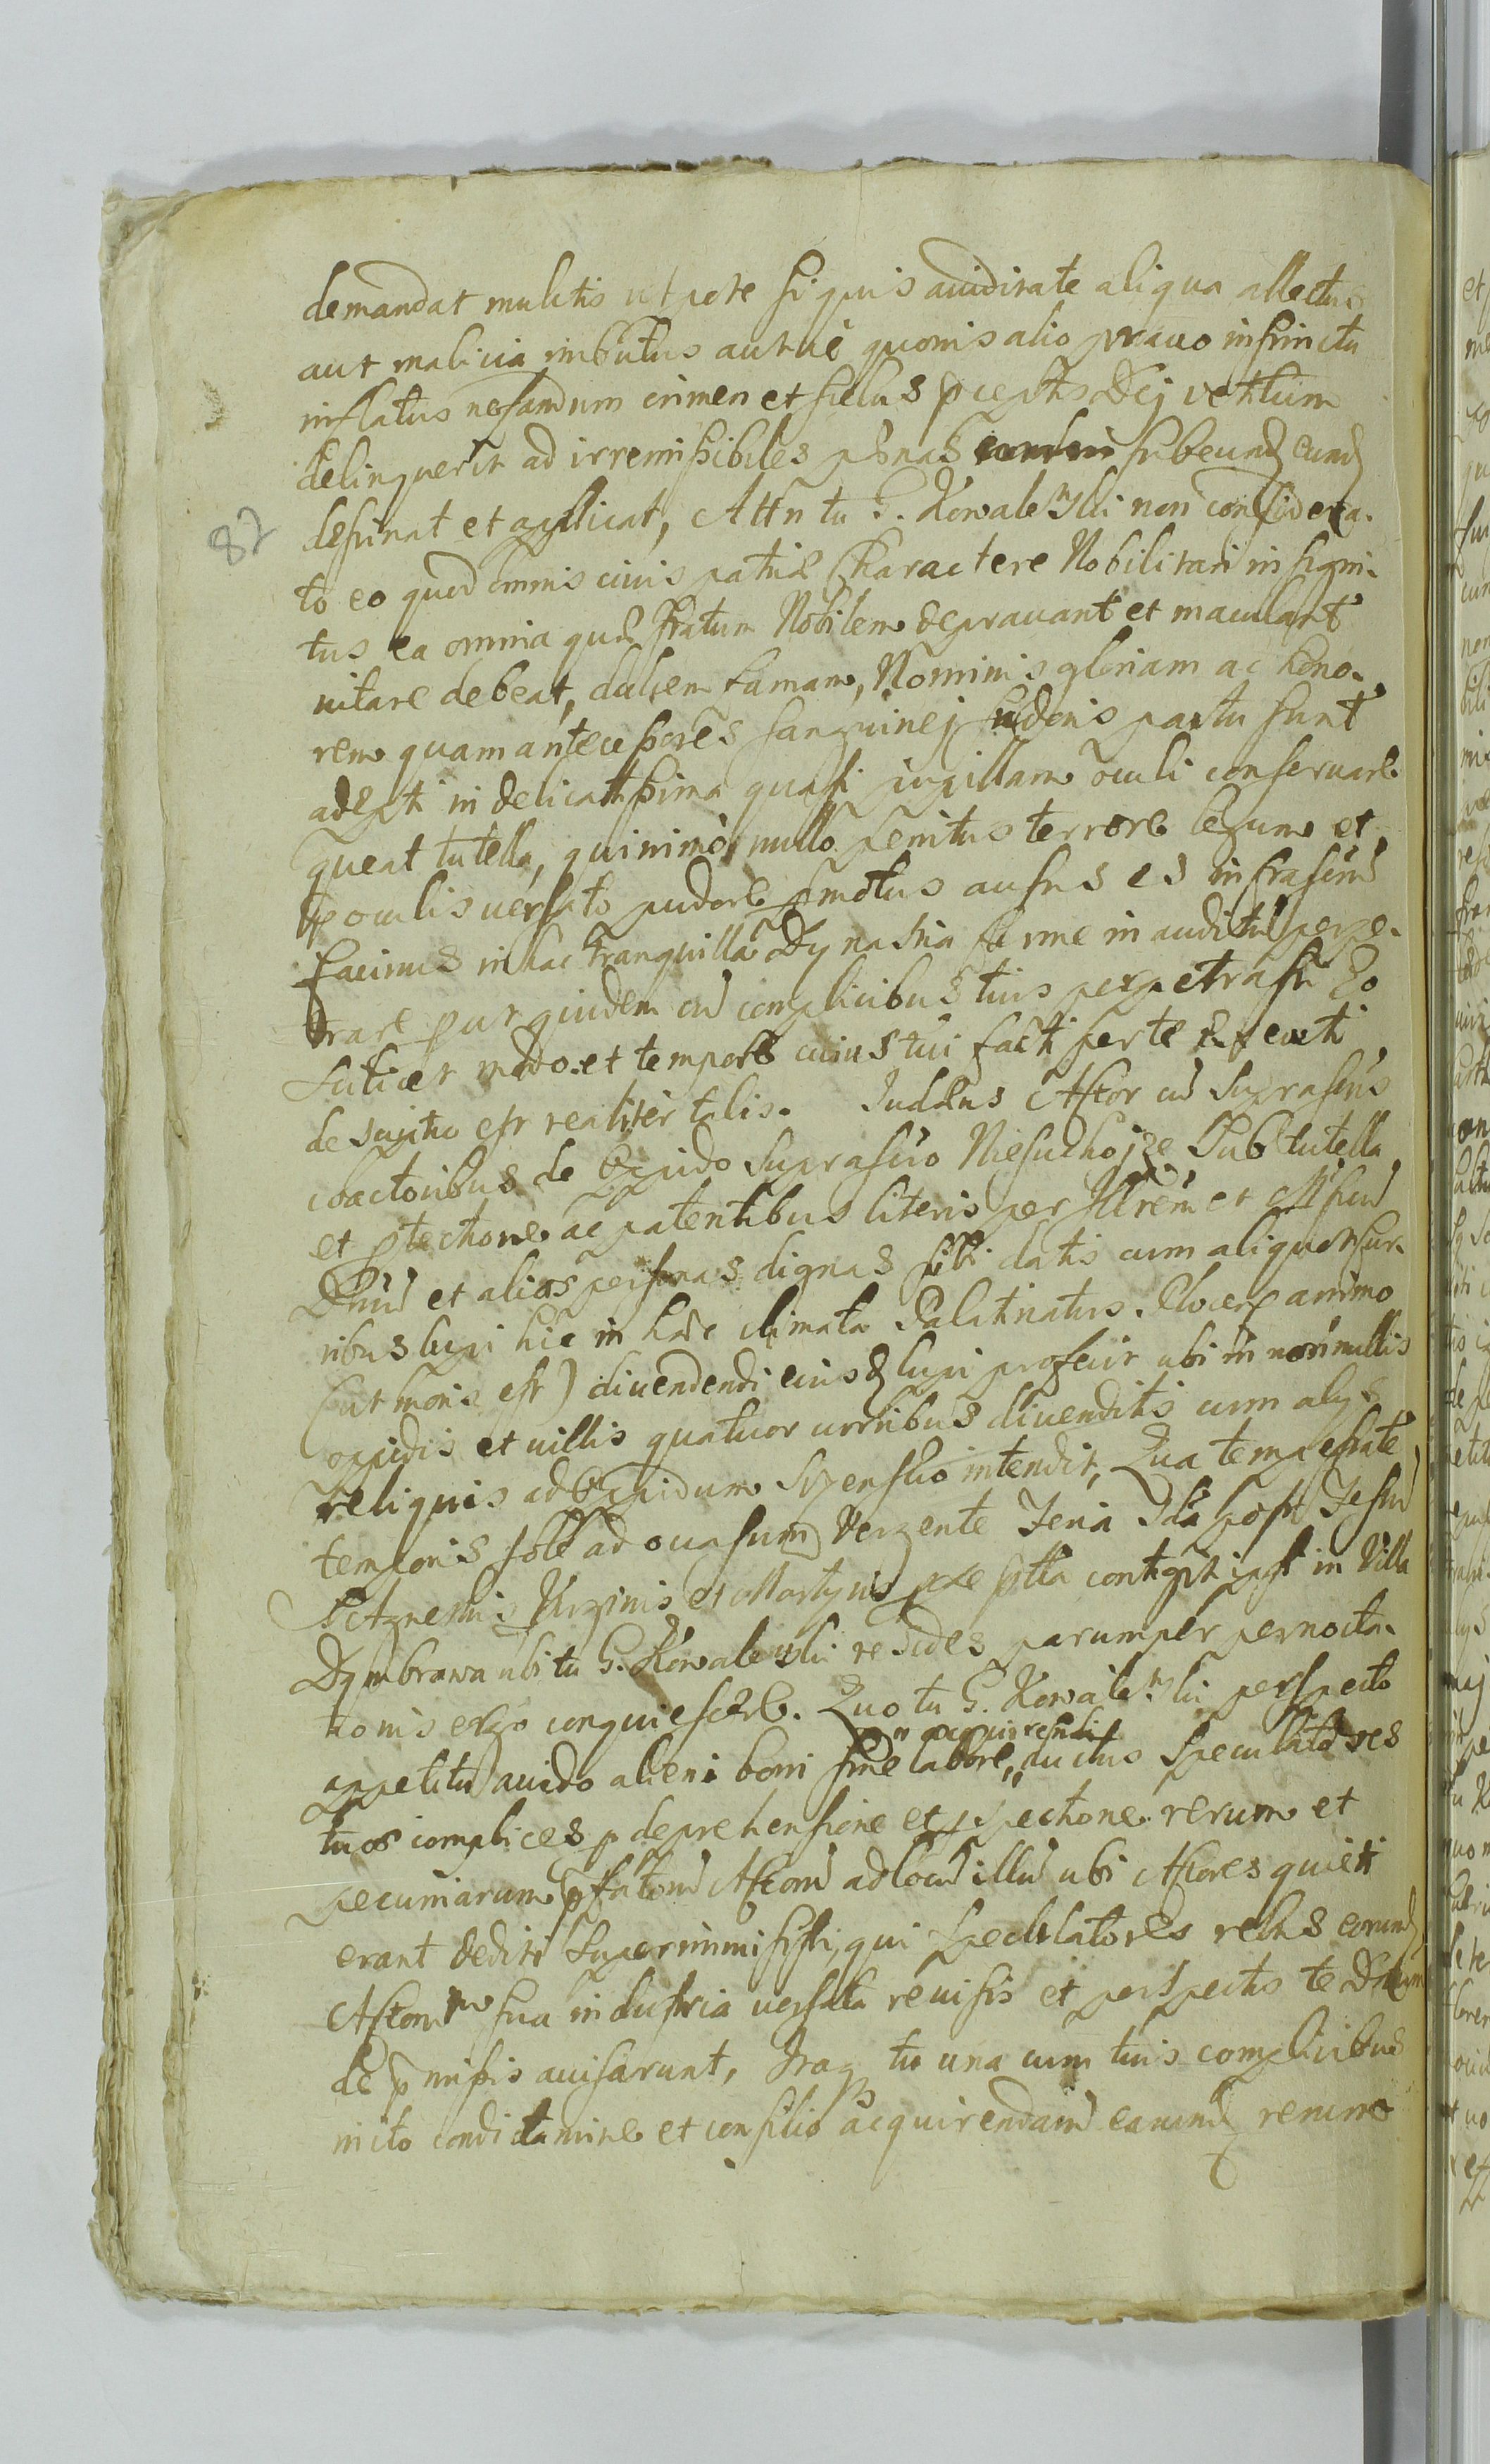 demandat mulctis utpote si quis auiditate aliqua allectus
aut malicia imbutus autuè quouis alio prauo instinctu
inflatus nefandum crimen et scelus pceptis Dei vetitum
delinquerit ad irremissibiles pœnas subeund eund
destinat et applicat, Attn tu G. Kowalewski non considera-
to eo quod omnis ciuis patriæ Charactere Nobilitari insigni-
tus ea omnia quæ statum Nobilem deprauant et maculant
uitare debeat, dulcem famam, Nominis gloriam ac hono-
rem quam antecessores sanguinej sudoris partu sunt
adepti in delicatissima quasi pupillam oculi conseruare
queat tutella, quinimò nullo penitus terrore legum et
p oculis uersato pudore pmotus ausus es infrascrm
facinus in hac tranquilla Dynastia ferme inauditu perpe-
trare put quidem cu complicibus tuis perpetrasti Eo
scilicet modo et tempore cuius tui facti
descriptio est realiter talis. Judæus Actor cu suprascris
coactoribus de Oppido suprascro Niesuchojze Sub tutella
et ptectione ac patentibus literis per Illrem et
Dnm et alias personas dignas sibi datis cum aliquot cur-
ribus lupi hic in hæc climata Palatinatus. animo
(ut moris est) diuendendi eiusd lupi profecit ubi in nonnullis
oppidis et uillis quatuor curribus diuenditis cum alys
reliquis ad Oppidum intendit, Qua tempestate
temporis sole ad occasum vergente Feria 3tia post Festu
S Agnetis Virginis et Martyris contigit ipsi in Villa
Dymbrawa ubi tu G. Kowalewski resides parumper pernocta-
tionis ergo conquiescere. Quo tu G. Kowalewski perspecto
acquirendi
appetitu auido alieni boni sine labore, ductus speculatores
tuos complices p deprehensione et pspectione rerum et
pecuniarum pfatoru Actoru ad locu illu ubi Actores quieti
erant dediti superimmisisti, qui speculatores rebus eorund
Actorum sua industria uersata reuisis et perspectis te
de pmissis auisarunt, Itaq tu una cum tuis complicibus
inito condictamine et consilio acquirendaru earund rerum
87